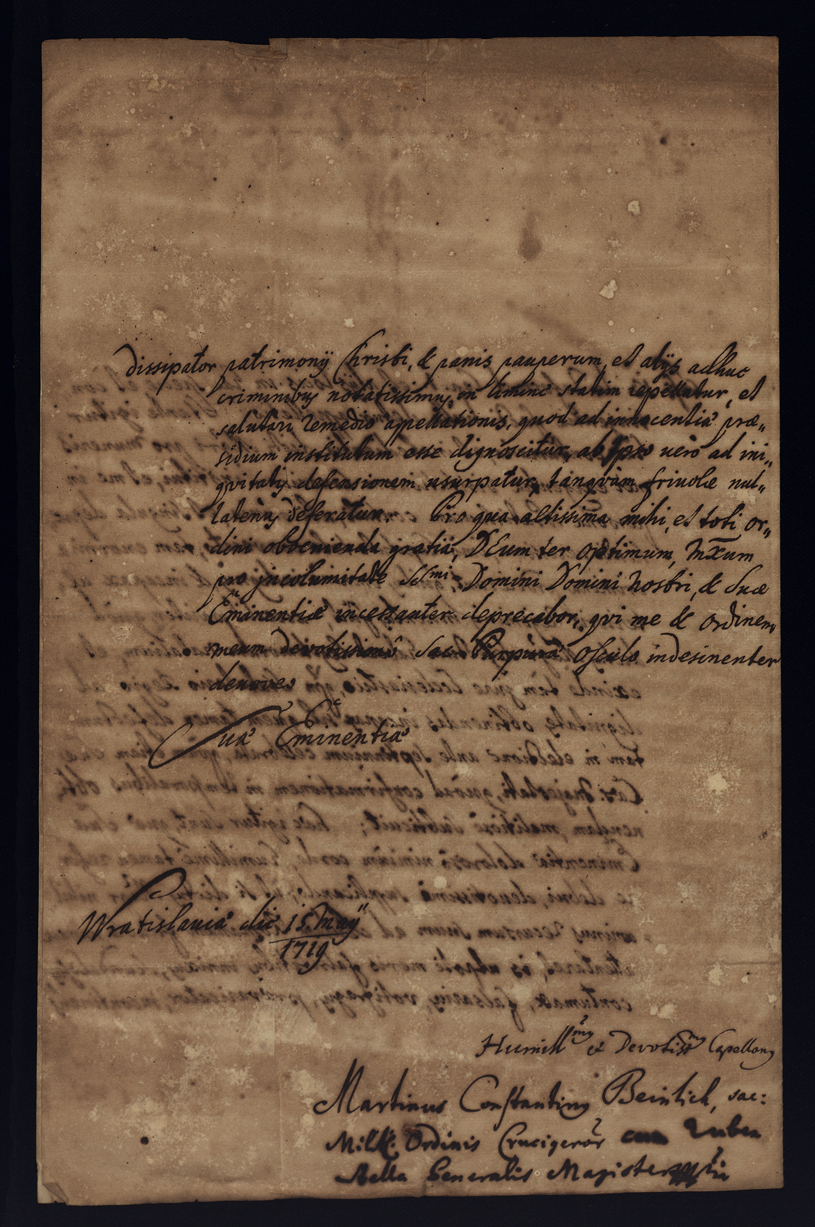 dissipator patrimonij Christi, & panis pauperum, et alijs adhuc
criminibus notatissimus, in limine statim repellatur, et
salutari remedio appellationis, quod ad innocentiæ præ-
sidium institutum esse dignoscitur, ab ipso vero ad ini-
qvitatis defensionem usurpatur, tanqvam frivolæ nul-
latenus deferatur. Pro qua altissima mihi, et toti or-
dini obvenienda gratia, DEum ter optimum, Mxum
pro incolumitate Ssmi Domini Domini Nostri, & Suæ
Eminentiæ incessanter deprecabor, qvi me & Ordinem
meum devotissimo Sac. Purpuræ osculo indesinenter
devoveo
Suæ Eminentiæ
Wratislaviæ die 15 Maÿ
1719
Humillimus et Devotissimus Capellanus
Martinus Constantinus Beinlich, sac:
Milit: Ordinis Crucigeror cum Rubea
Stella Generalis Magister